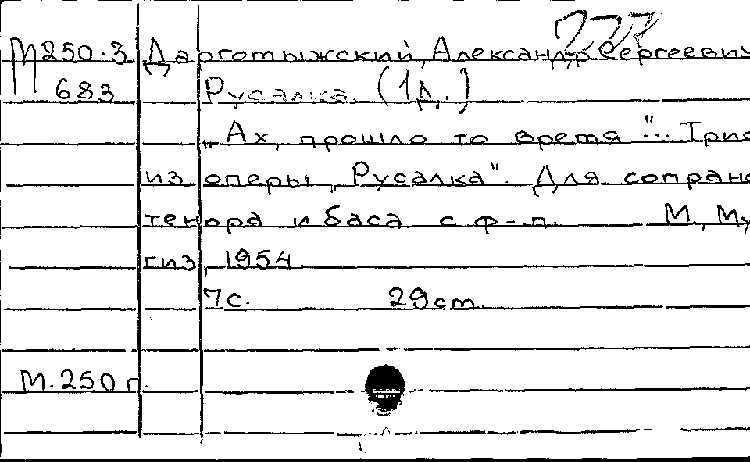 227
М250.3 Даргомыжский, Александр Сергеевич
683 Русалка (1д.)
„Ах, прошло то время"... Трио
из оперы „Русалка". Для сопрано
тенора и баса с ф-п. М., Му
гиз, 1954
7с. 29cm.
М.250г.